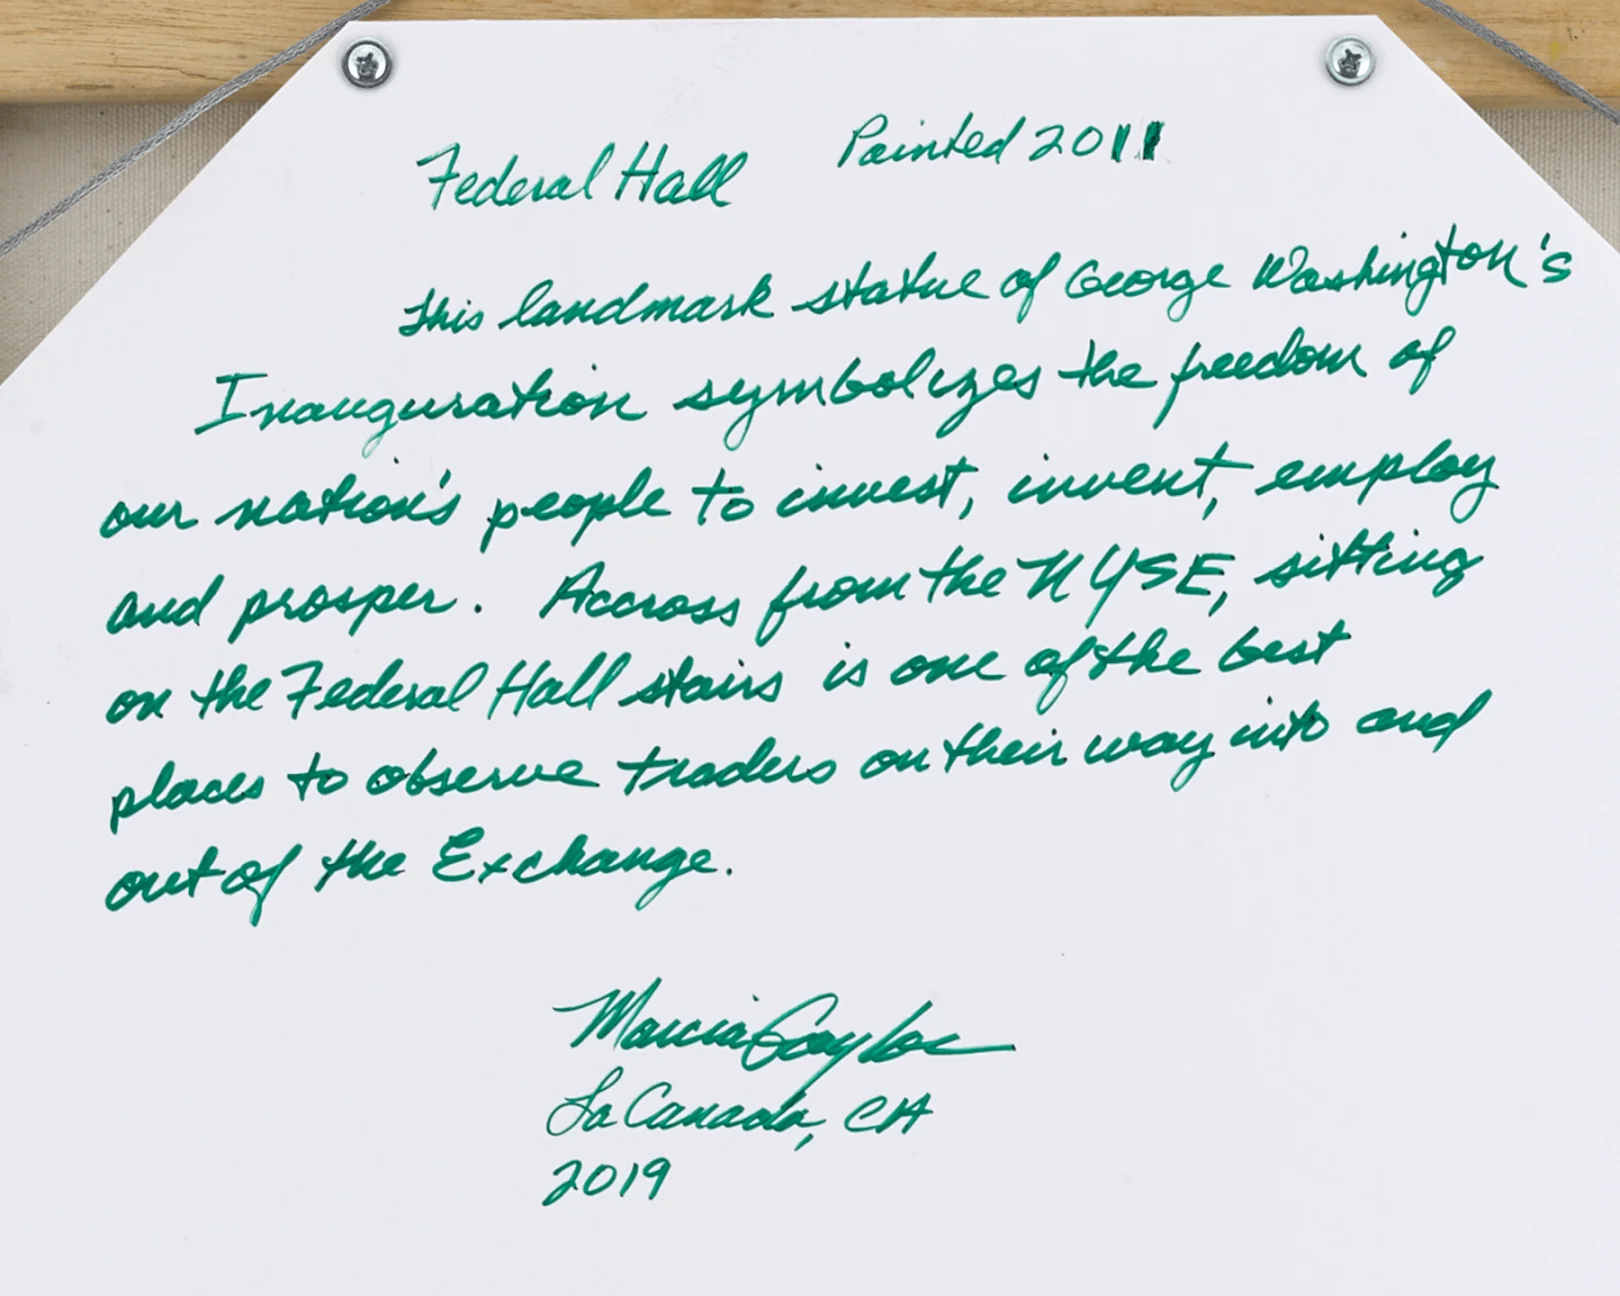 Federal Hall Painted 2011
This landmark statue of George Washington's
Inauguration symbolizes the freedom of
our nation's people to invest, invent, employ
and prosper. Accross from the NYSE, sitting
on the Federal Hall stairs is one of the best
places to observe traders on their way into and
out of the Exchange.
Marcia Gaylor
La Canada, CA
2019